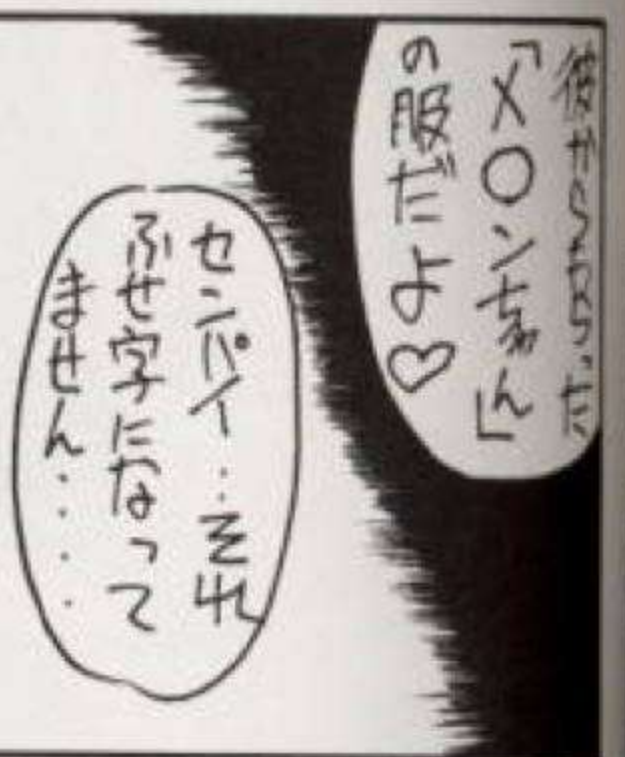 彼からもらった
「メ〇ンちゃん」
の服だよ♡
センパイ‥それ
ふせ字になって
ません‥‥